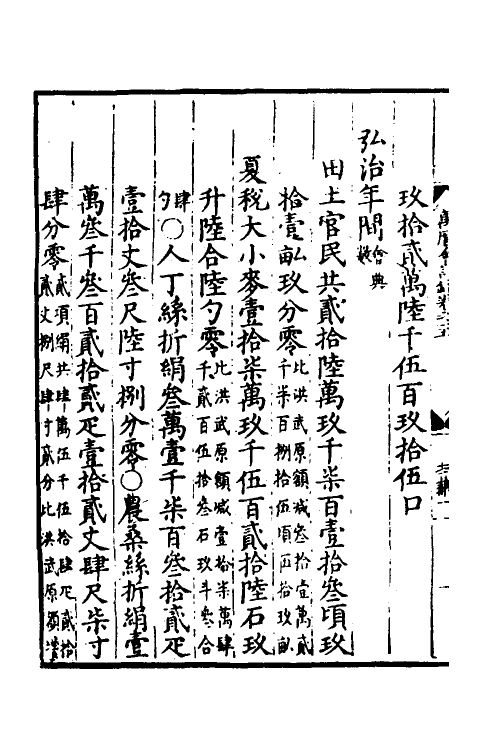 玖拾貳萬陸千伍百玖拾伍口
弘治年間會典數
田土官民共貳拾陸萬玖千柒百壹拾叄頃玖
拾壹畝玖分零比洪武原額减叄拾壹萬貳
千柒百捌拾伍頃伍拾玖畝
夏稅大小麥壹拾柒萬玖千伍百貳拾陸石玖
升陸合陸勺零比洪武原額减壹拾柒萬肆
千貳百伍拾叄石玖斗叄合
肆勺〇人丁絲折絹叄萬壹千柒百叄拾貳疋
壹拾丈叄尺陸寸捌分零〇農桑絲折絹壹
萬叄千叄百貳拾貳疋壹拾貳丈肆尺柒寸
肆分零貳項絹共肆萬伍千伍拾肆疋貳拾
貳丈捌尺肆寸貳分比洪武原額